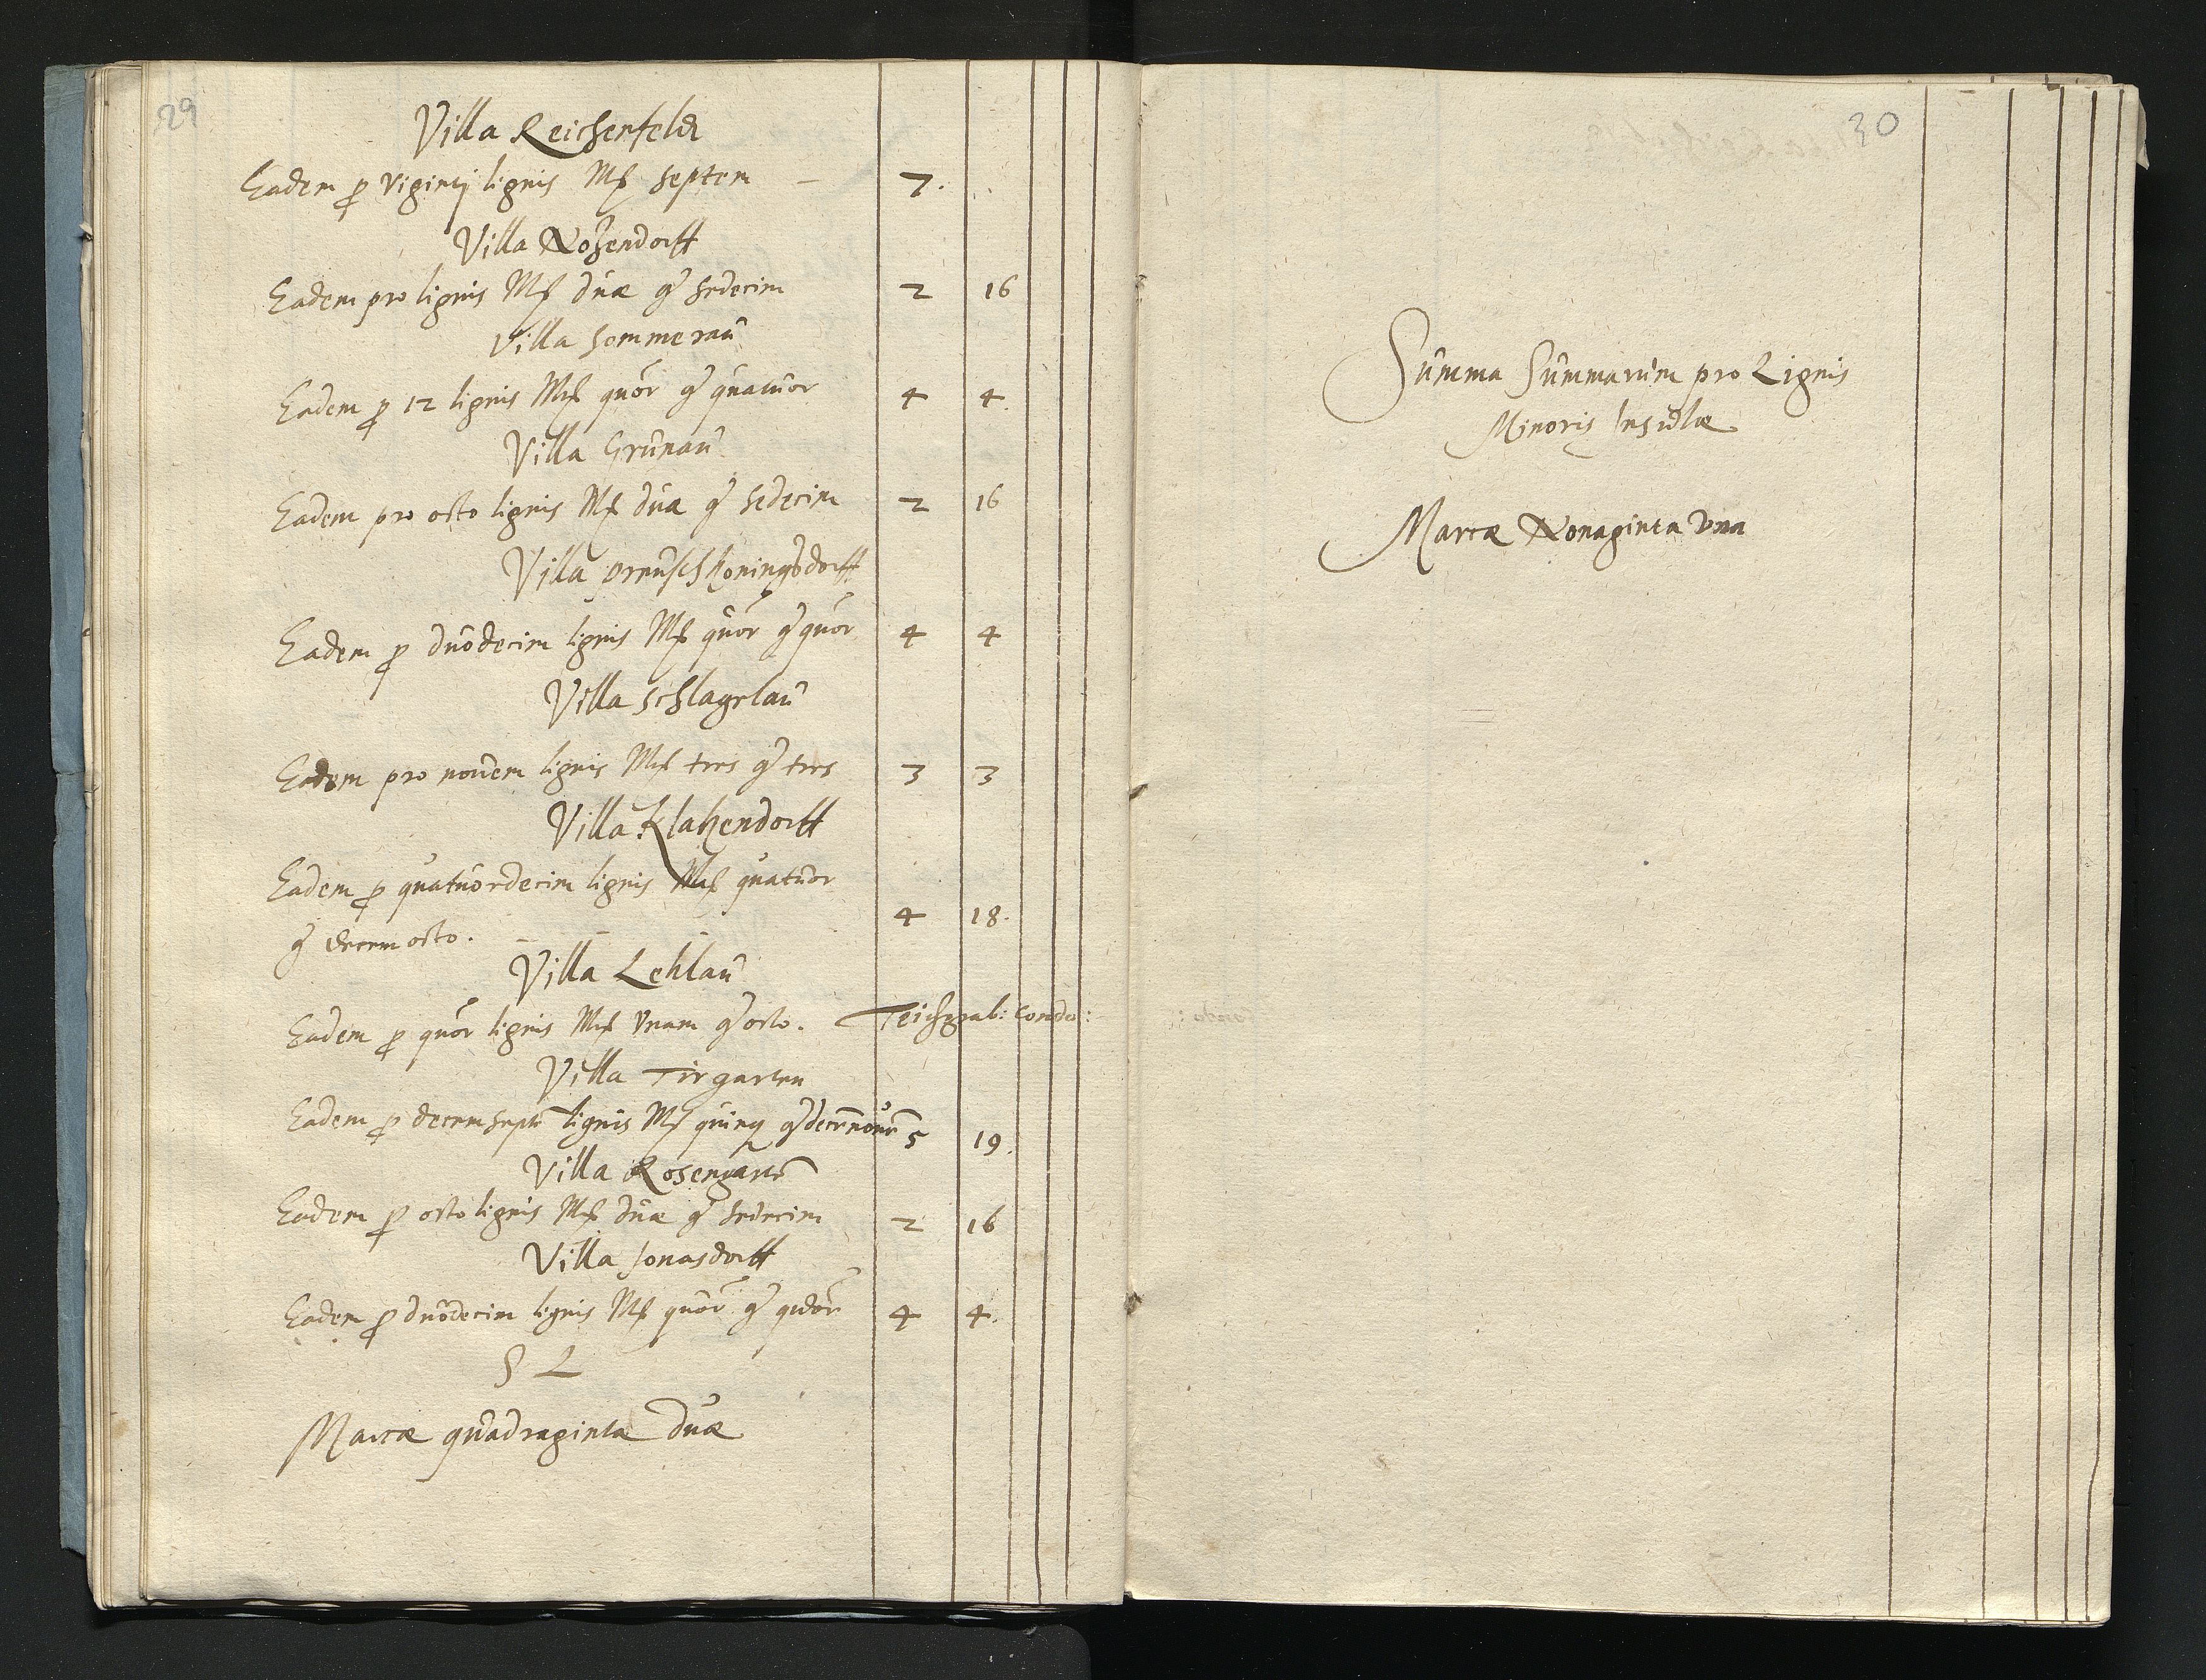 29
Villa Reichenfeldt
Eadem p Vigintj lignis Mȩ septem — 7.
Villa Noßendorff
Eadem pro lignis Mȩ duæ gͦ sedecim 2 16
Villa Sommerau
Eadem p 12 lignis Mȩ quōr gͦ quatuor 4 4.
Villa Grunau
Eadem pro octo lignis Mȩ duæ gͦ sedecim 2 16
Villa Preuschkoningsdorff
Eadem p duodecim lignis Mȩ quōr gͦ quōr 4 4
Villa Schlagelau
Eadem pro novem lignis Mȩ tres gͦ tres 3 3
Villa Klatzendorff
Eadem p quatuordecim lignis Mȩ quatuor
gͦ decem octo. 4 18.
Villa Leklau
Eadem p quōr lignis Mȩ Vnam gͦ octo. Teichgrab: Condo:
Villa Tirgarten
Eadem p decem septē lignis Mȩ quinq gͦ decēnouē 5 19.
Villa Rosengartē
Eadem p octo lignis Mȩ duæ gͦ sedecim 2 16
Villa Jonasdorff
Eadem p duodecim lignis Mȩ quōr gͦ quōr 4 4.
S L
Marcæ quadraginta duæ
30
Summa Summarum pro Lignis
Minoris Insulæ
Marcæ Nonaginta Vna